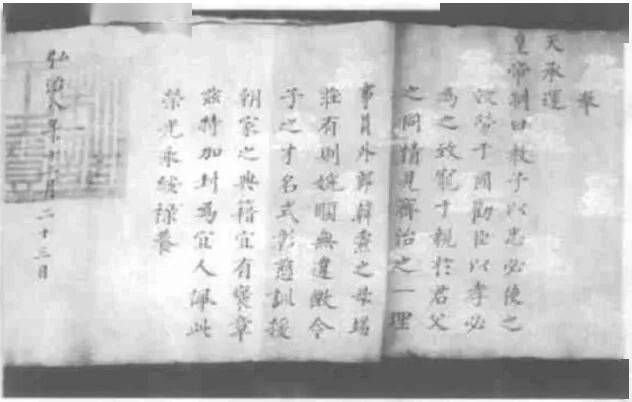 奉
天承運
皇帝制曰教子以忠必使之
效勞于國勸臣以孝必
為之致寵于親於君父
之同情見齊治之一理
事員外郎韓之母
莊有則婉順無違令
子之才名式彰慈訓援
朝家之典籍宜有褒章
茲特加封為宜人佩此
榮光永綏祿養
弘治八年十月二十三日